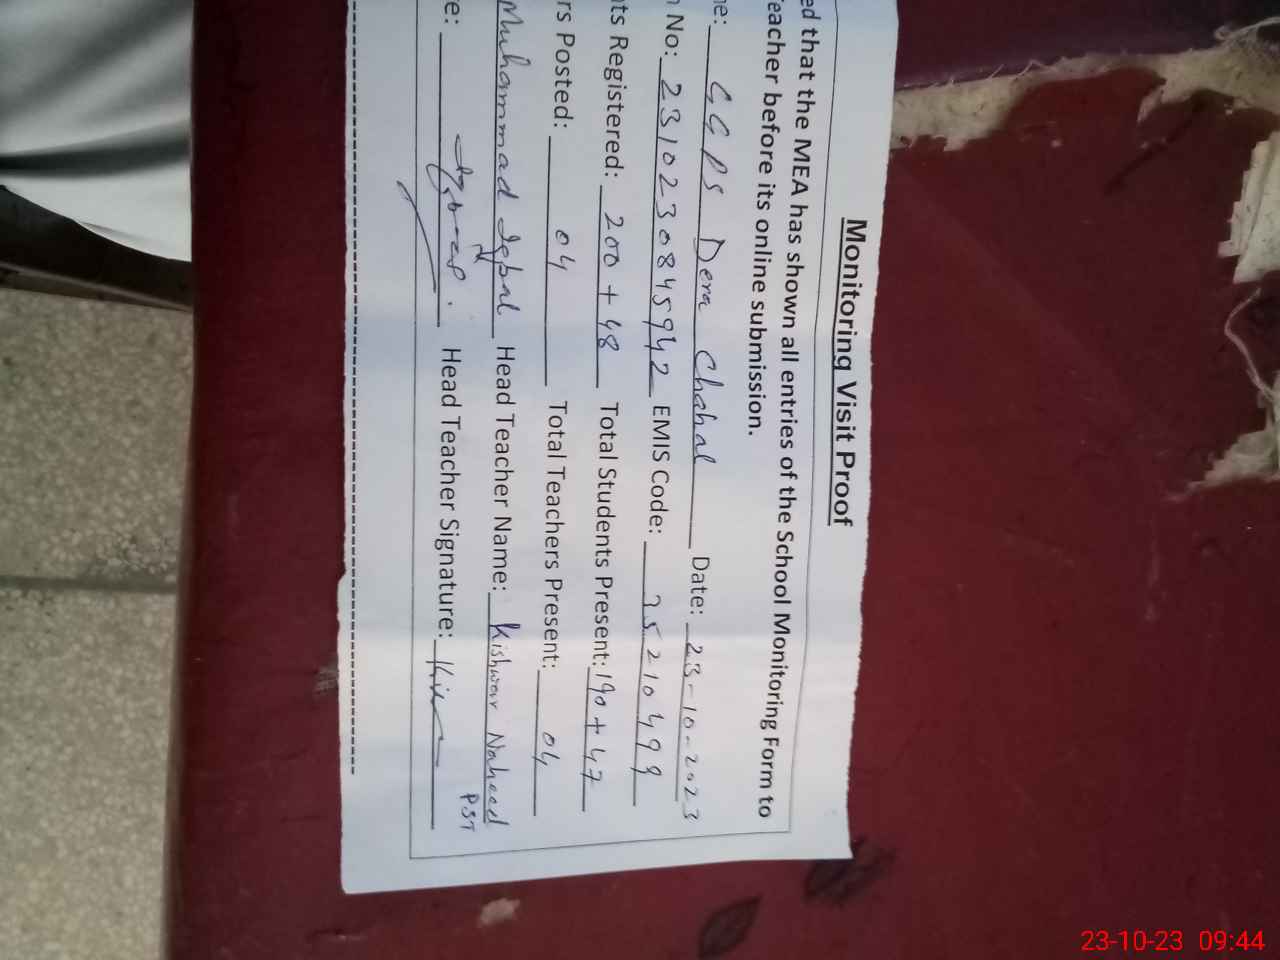 Monitoring Visit Proof
ed that the MEA has shown all entries of the School Monitoring Form to
eacher before its online submission.
ne: GGPS Dera Chahal Date: 23-10-2023
No: 2310230845942 EMIS Code: 35210499
ts Registered: 200 + 48 Total Students Present: 190 + 47
rs Posted: 04 Total Teachers Present: 04
Muhammad Iqbal Head Teacher Name: Kishwar Naheed
PST
e: Head Teacher Signature:
23-10-23 09:44